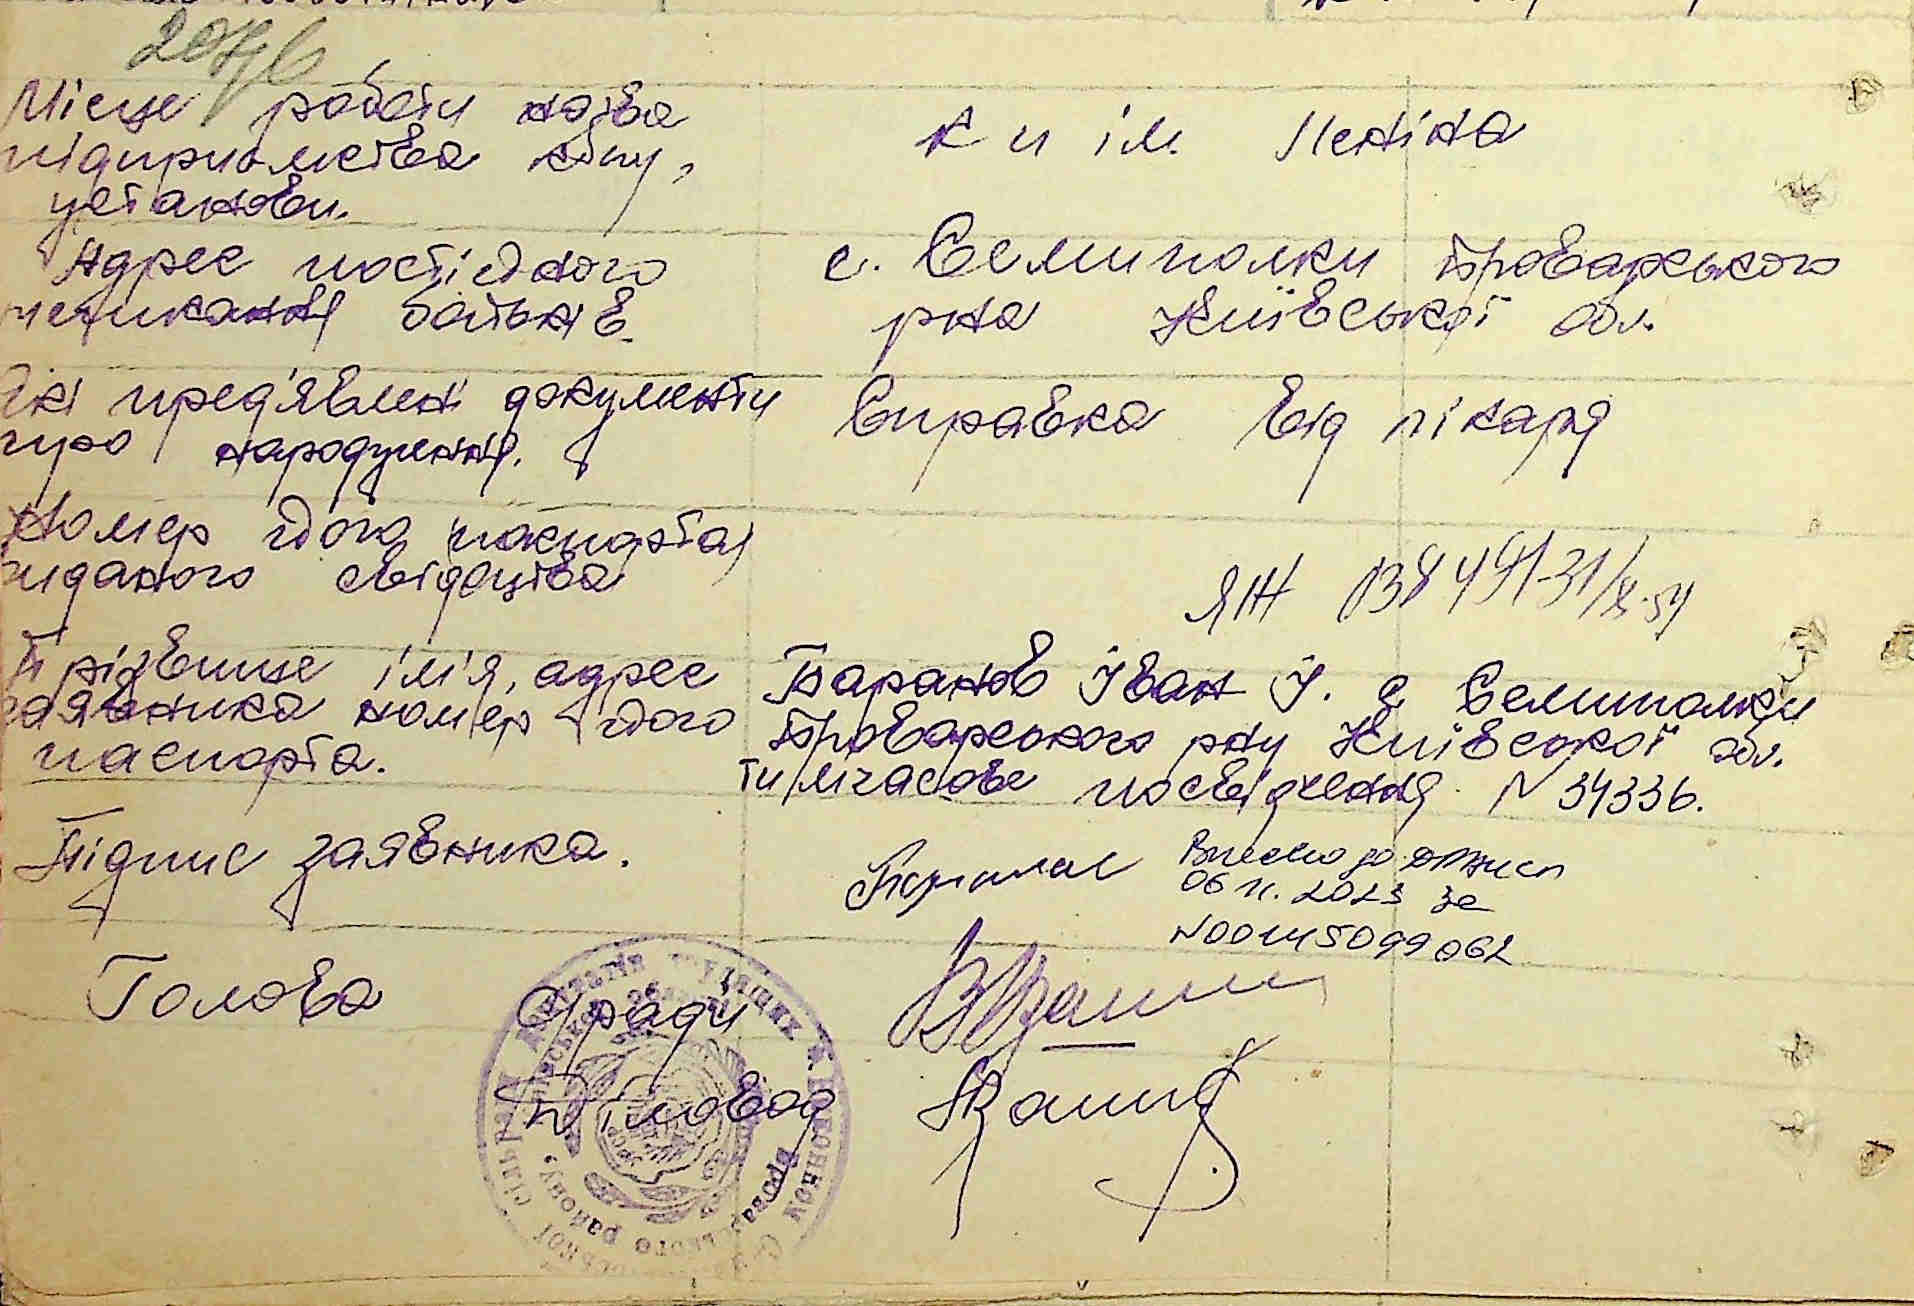 Місце роботи назва
підприємства кпу,
установи.
к п ім. Леніна
Адрес постійного
мешкання батьків.
с. Семиполки Броварського
рна Київської обл.
Які пред'явлені документи
про народження.
Справка від лікаря
Номер його паспорта,
виданого свідоцтва
ЯЖ
Прізвище ім'я, адрес
заявника номер його
паспорта.
Баранов Іван І. с. Семиполки
Броварського рну Київської обл.
тимчасове посвідчення N 34336.
Підпис заявника.
Внесено до
06 11. 2023 за
N00145099062
Голова С/ради
Діловод
депутатів трудящих
Броварського району,